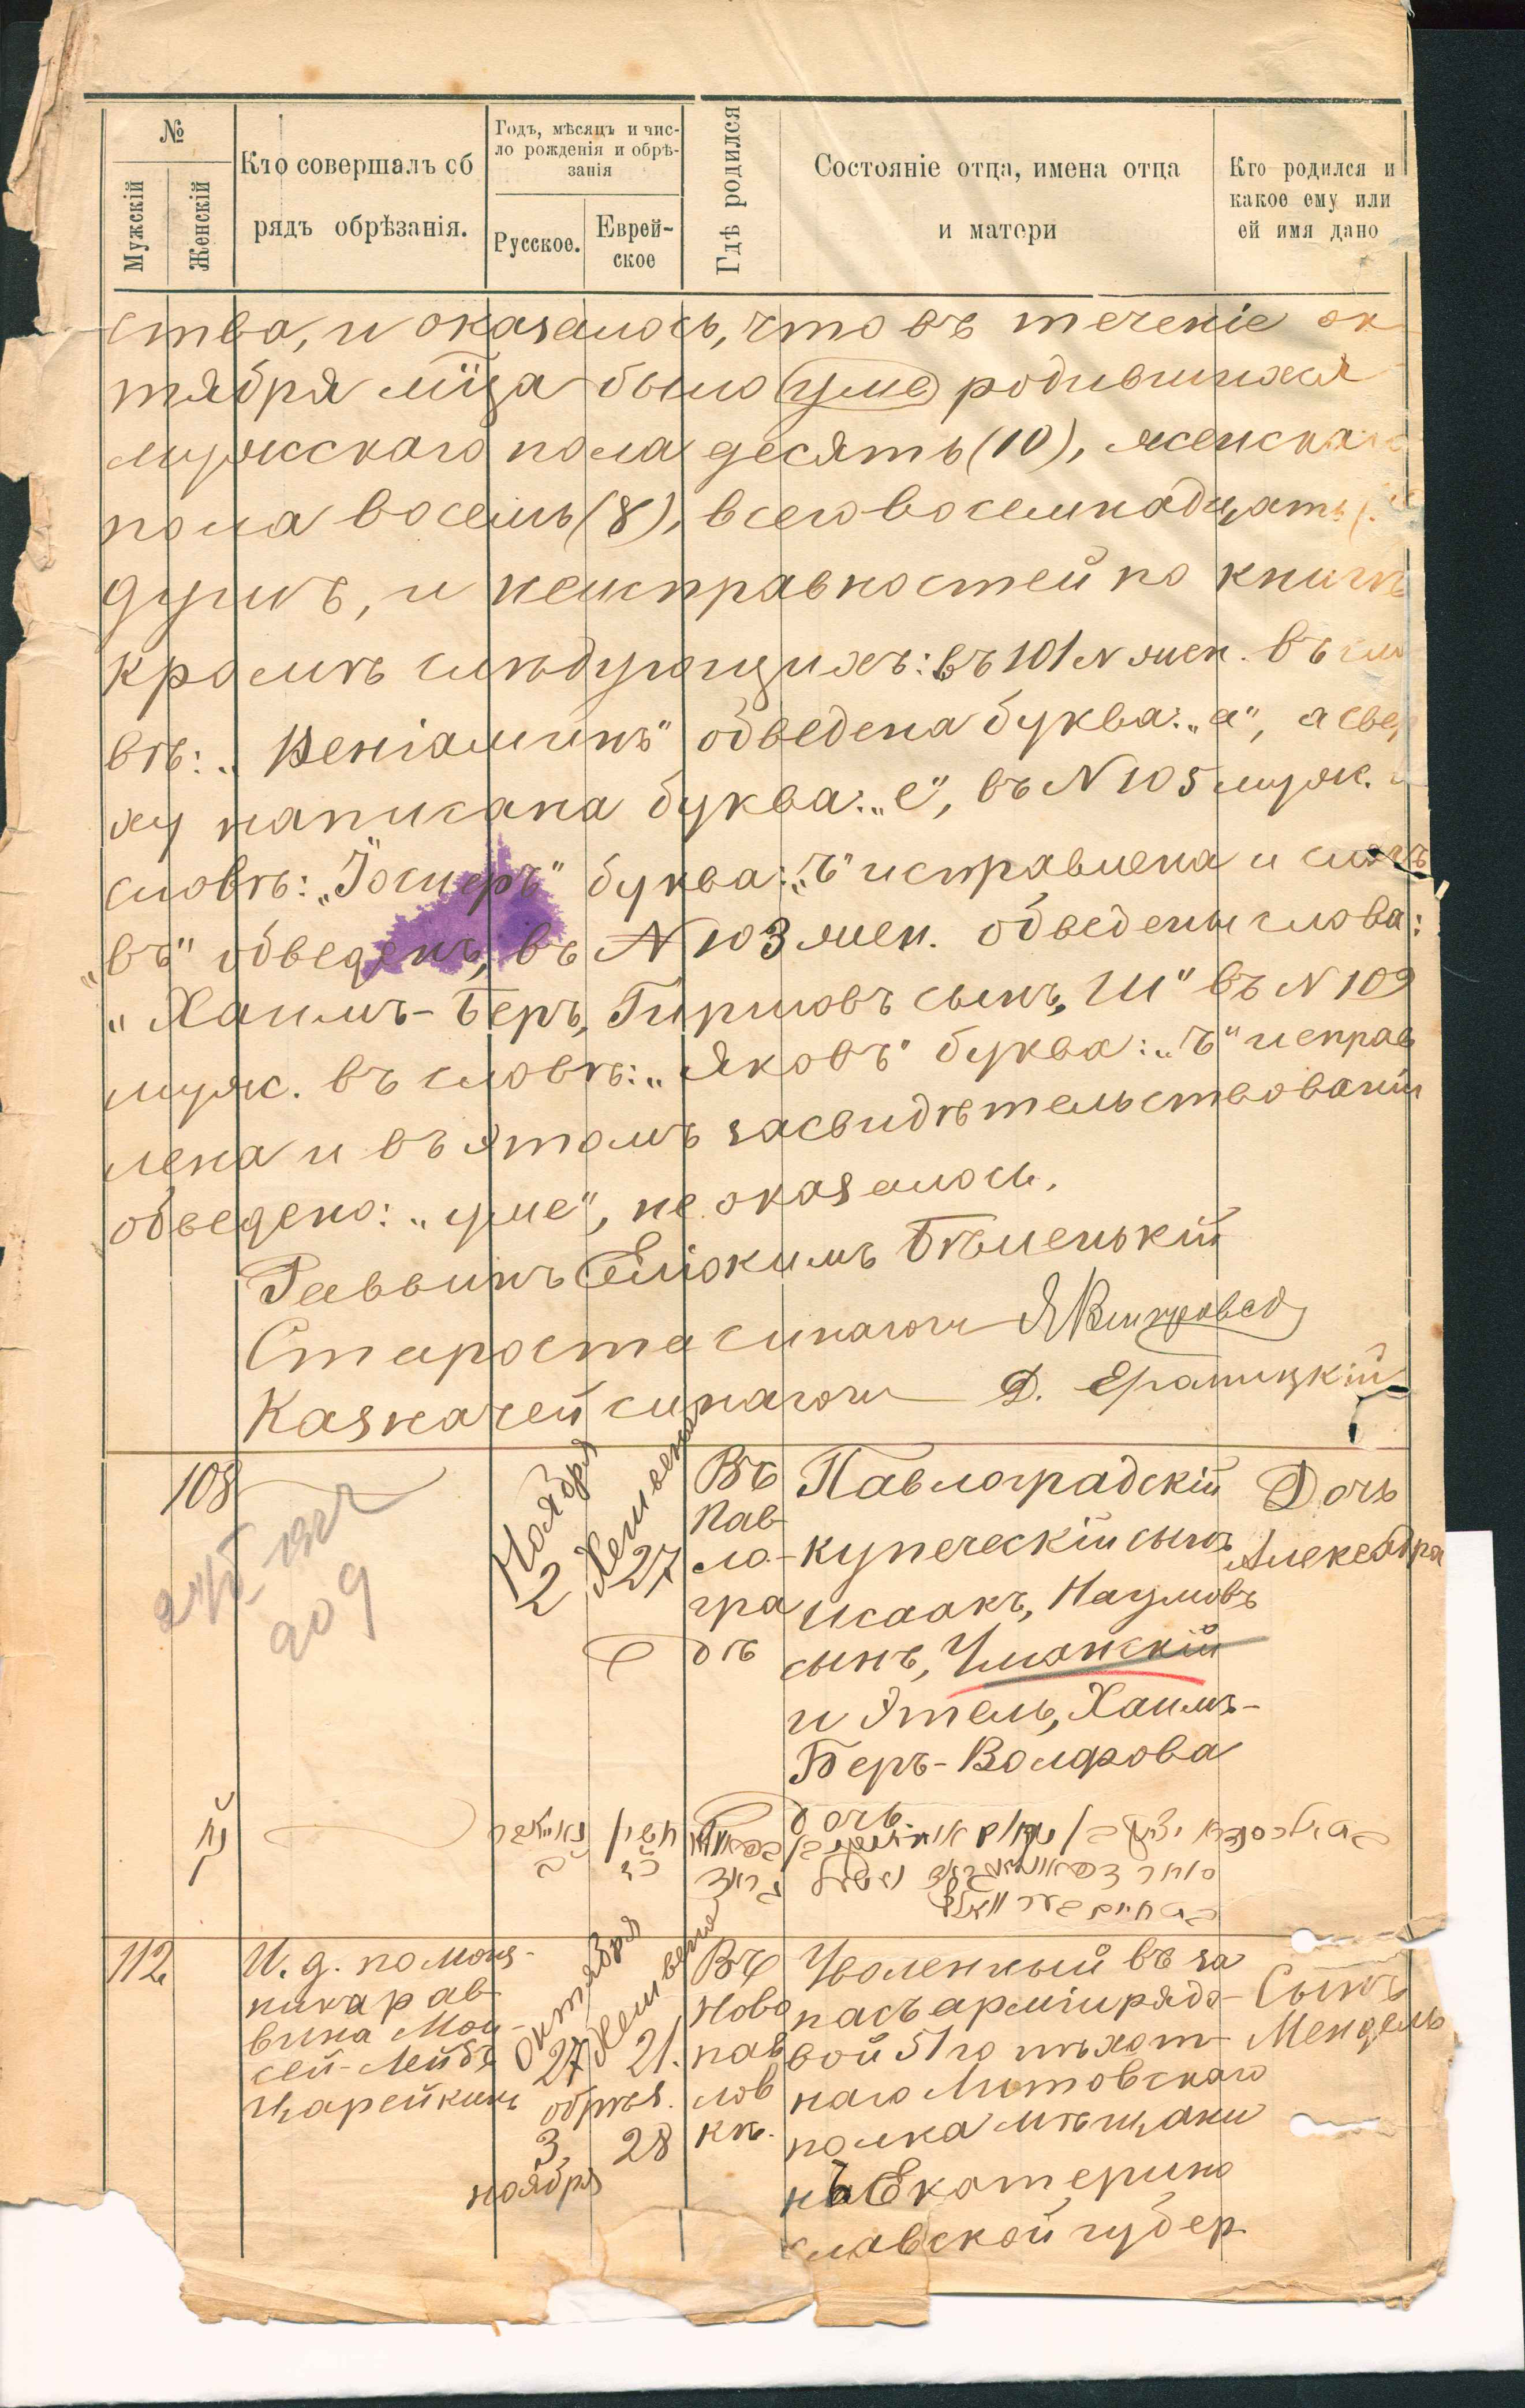 №
Мужскій
Женскій
Кто совершалъ об
рядъ обрѣзанія.
Годъ, мѣсяцъ и чис-
ло рожденія и обрѣ-
занія
Русское.
Еврей-
ское
Гдѣ родился
Состояніе отца, имена отца
и матери
Кто родился и
какое ему или
ей имя дано
ства, и оказалось, что въ теченіе ок
тября мѣца было уже родившихся
мужескаго пола десять (10), женскаго
пола восемь (8), всего восемнадцать
душъ, и неисправностей по книгѣ
кромѣ слѣдующихъ: въ 101 N жен. въ сло
вѣ: „Веніаминъ" обведена буква: „а", а свер
ху написана буква: „е", въ N 105 муж. в
словѣ: „Іосифъ" буква: „ъ" исправлена и
„въ" обведенъ, въ N 103 жен. обведены слова:
„Хаимъ-Беръ, Гиршовъ сынъ, Ш" въ N 109
муж. въ словѣ: „Яковъ" буква: „ъ" исправ
лена и въ этомъ засвидѣтельствованіи
обведено: „уже", не оказалось.
Раввинъ Еліокимъ Бѣленькій
Староста синагоги
Казначей синагоги Д.
108
Ноября
2
Хешвена
27
Въ
Пав-
ло-
гра
дѣ
Павлоградскій
купеческій сынъ
Исаакъ, Наумовъ
сынъ, Уманскій
и Этель, Хаимъ-
Беръ-Волфова
дочь
Дочь
Александра
209
112
И. д. помощ-
ника рав-
вина Мои-
сей-Лейбъ
Царейкинъ
Октября
27
обрѣз.
3,
ноября
Хешвена
21.
28
Въ
Ново
пав
лов
кѣ.
Уволенный въ за
пасъ арміи рядо-
вой 51го пѣхот-
наго Литовскаго
полка мѣщани
нъ Екатерино
славской губер.
Сынъ
Мендель